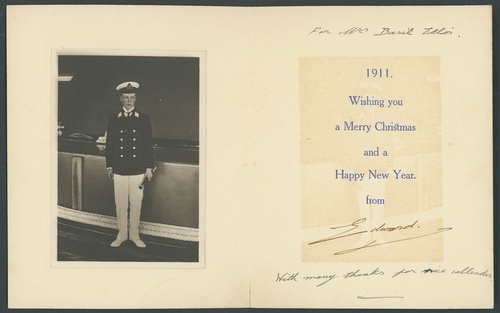 For Mr Basil
1911.
Wishing you
a Merry Christmas
and a
Happy New Year.
from
Edward.
With many thanks for nice